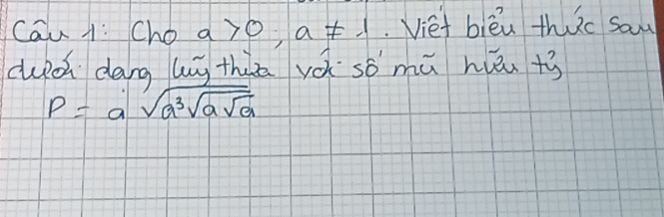 Câu 1: Cho a > 0, a ≠ 1. Viết biểu thức sau
dưới dạng luỹ thừa với số mũ hữu tỷ
P = a √(a³√(a√a))